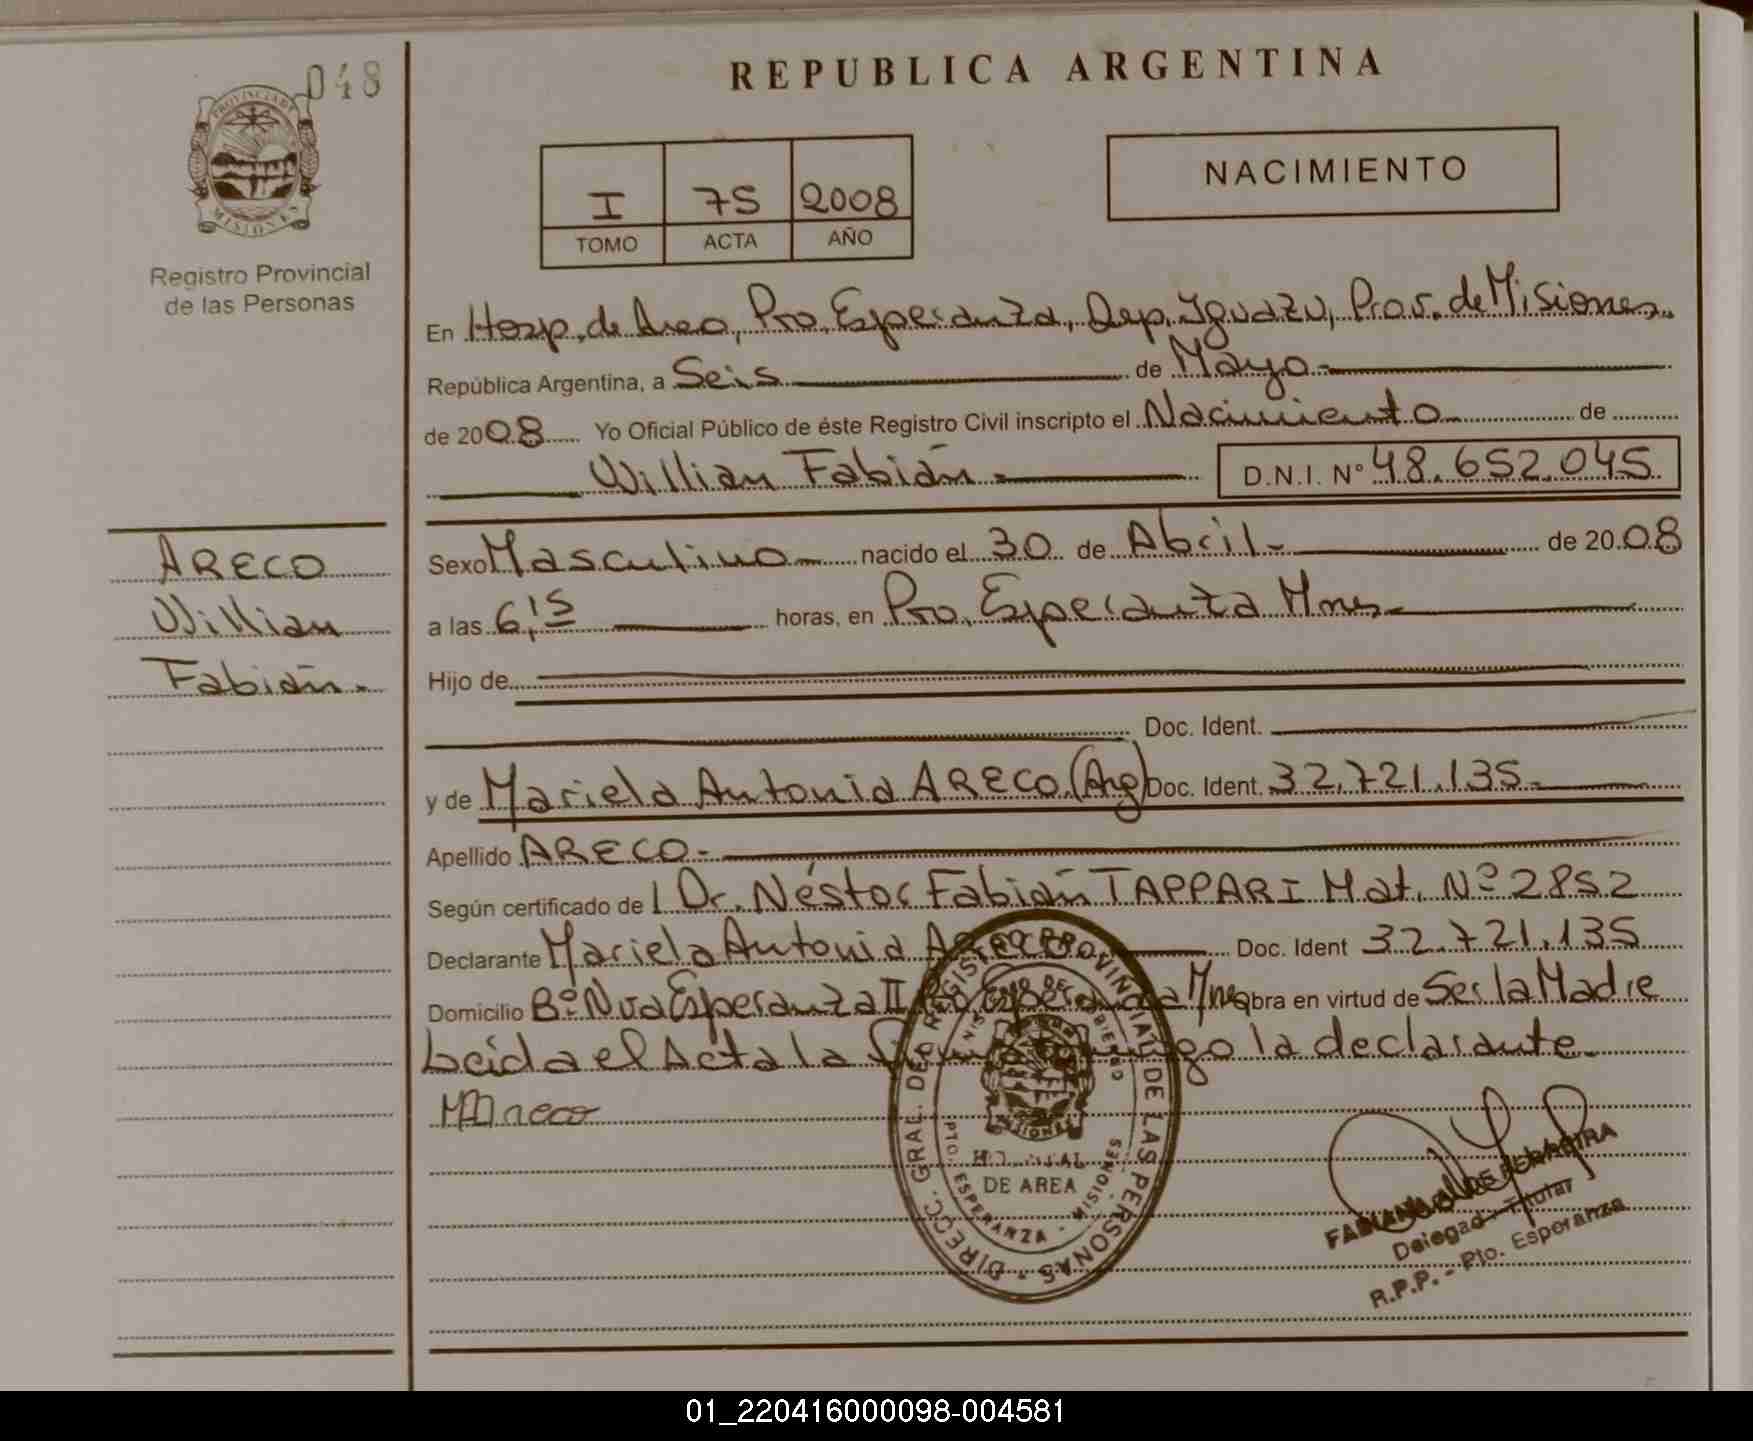 048
PROVINCIA DE
MISIONES
Registro Provincial
de las Personas
REPUBLICA ARGENTINA
I 75 2008
TOMO ACTA AÑO
NACIMIENTO
En Hosp. de Area, Pto. Esperanza, Dep. Iguazu, Prov. de Misiones.
República Argentina, a Seis de Mayo
de 2008 Yo Oficial Público de éste Registro Civil inscripto el Nacimiento de
Willian Fabián D.N.I. N° 48.652.045
ARECO
Willian
Fabián.
Sexo Masculino nacido el 30 de Abril de 2008
a las 6,15 horas, en Pto. Esperanza Mnes
Hijo de
Doc. Ident.
y de Mariela Antonia ARECO (Arg) Doc. Ident. 32.721.135
Apellido ARECO
Según certificado de l Dr. Néstor Fabián TAPPARI Mat. Nº 2852
Declarante Mariela Antonia ARECO Doc. Ident 32.721.135
Domicilio Bº Nva Esperanza II Pto. Esperanza Mnes obra en virtud de Ser la Madre
Leída el Acta la firma conmigo la declarante
MAreco
DIRECC. GRAL. DE REGISTRO PROVINCIAL DE LAS PERSONAS
MISIONES
HOSPITAL
DE AREA
PTO. ESPERANZA - MISIONES
Delegada Titular
R.P.P. - Pto. Esperanza
01_220416000098-004581